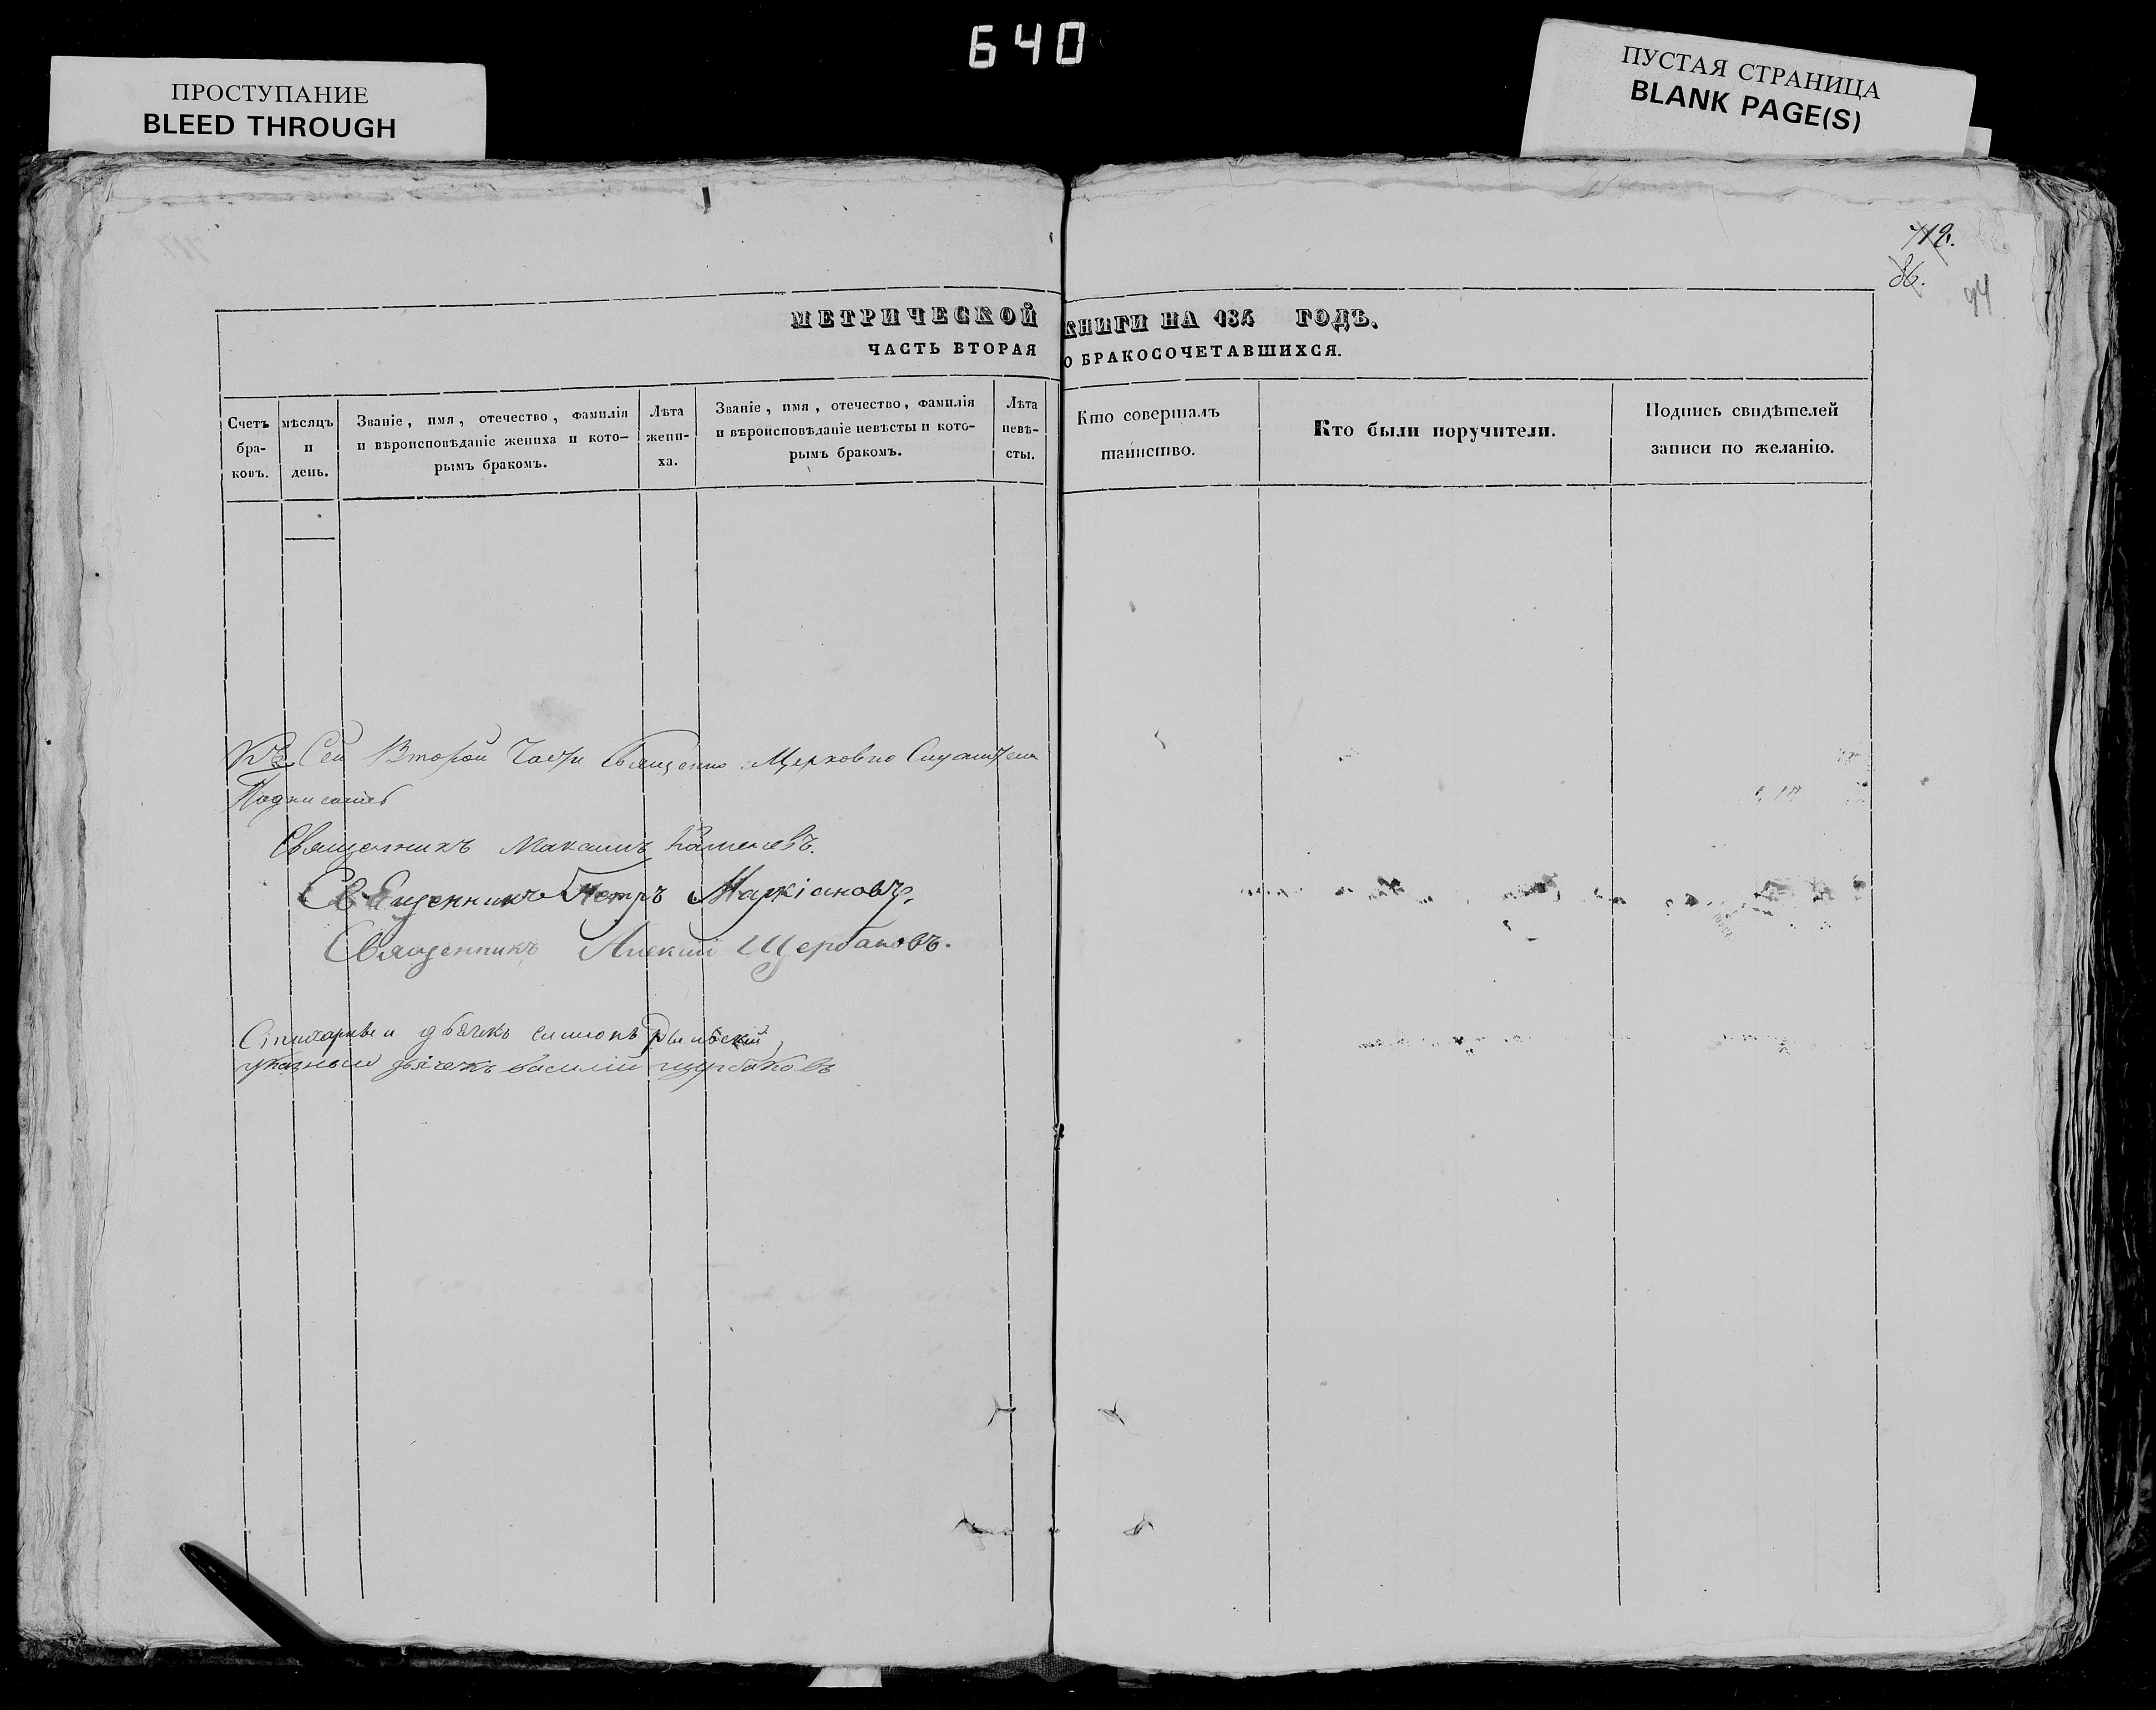 640
ПРОСТУПАНИЕ
BLEED THROUGH
ПУСТАЯ СТРАНИЦА
BLANK PAGE(S)
712.
86.
94
МЕТРИЧЕСКОЙ КНИГИ НА 184 ГОДЪ.
ЧАСТЬ ВТОРАЯ О БРАКОСОЧЕТАВШИХСЯ.
Счетъ бра- ковъ.
мѣсяцъ и день.
Званіе, имя, отечество, фамилія и вѣроисповѣданіе жениха и кото- рымъ бракомъ.
Лѣта жени- ха.
Званіе, имя, отечество, фамилія и вѣроисповѣданіе невѣсты и кото- рымъ бракомъ.
Лѣта невѣ- сты.
Кто совершалъ таинство.
Кто были поручители.
Подпись свидѣтелей записи по желанію.
Къ Сей Второй Части Священно Церковно Служители
Подписались
Священникъ Максимъ Каменевъ.
Священникъ Петръ Маркіановъ,
Священникъ Алексій Щербаковъ.
дьячекъ Симеонъ
указный дьячекъ василій щербаковъ